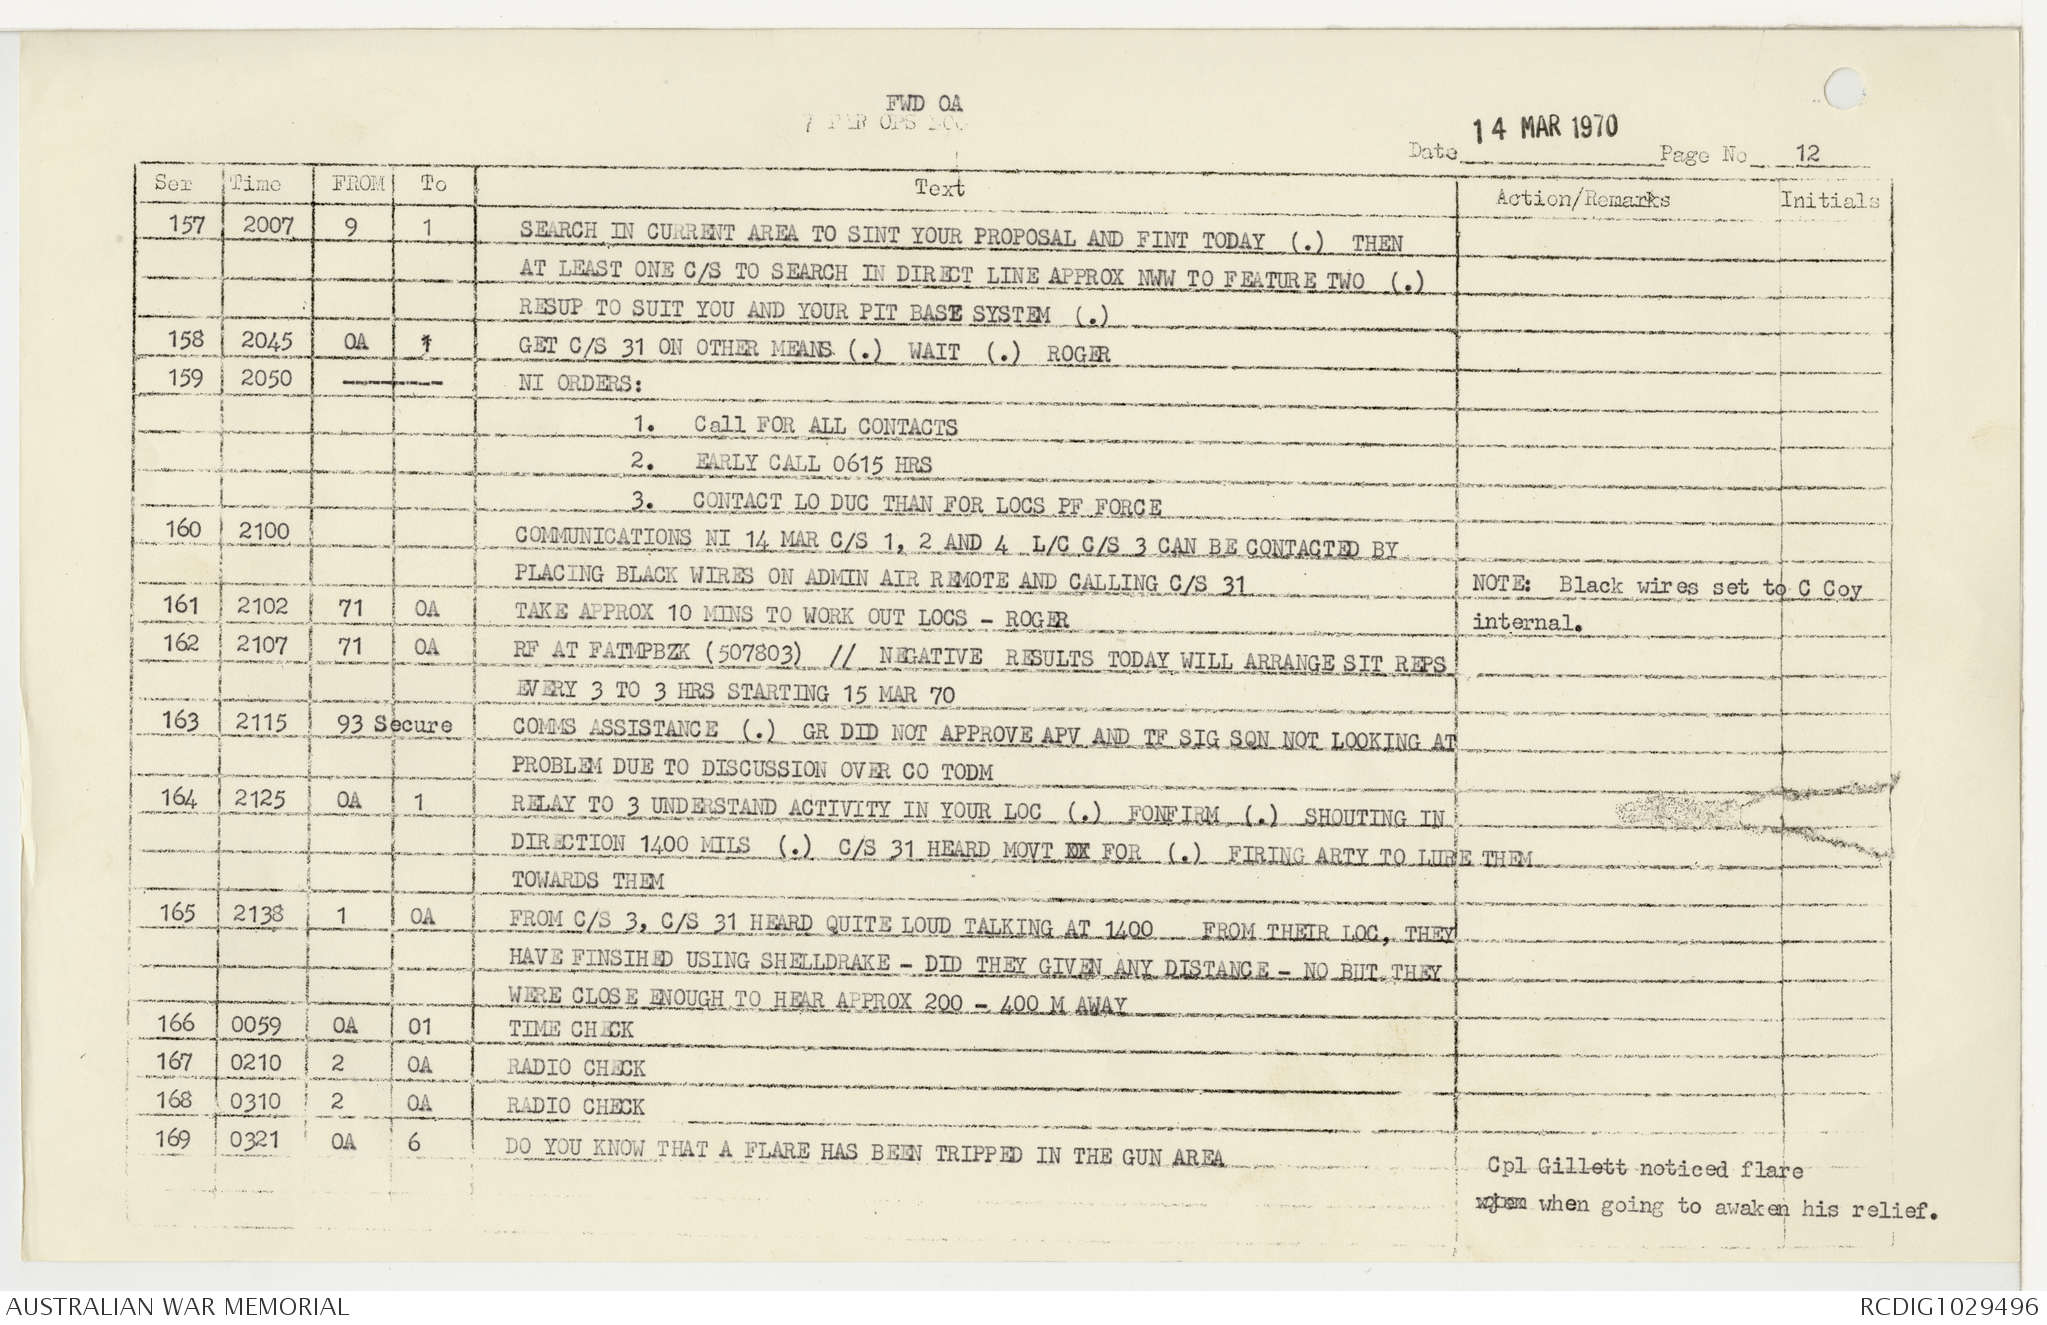 FWD OA
7 RAR OPS LOG
Date 14 MAR 1970 Page No 12
Ser Time FROM To Text Action/Remarks Initials
157 2007 9 1 SEARCH IN CURRENT AREA TO SINT YOUR PROPOSAL AND FINT TODAY (.) THEN
AT LEAST ONE C/S TO SEARCH IN DIRECT LINE APPROX NWW TO FEATURE TWO (.)
RESUP TO SUIT YOU AND YOUR PIT BASE SYSTEM (.)
158 2045 OA 1 GET C/S 31 ON OTHER MEANS (.) WAIT (.) ROGER
159 2050 ------- NI ORDERS:
1. Call FOR ALL CONTACTS
2. EARLY CALL 0615 HRS
3. CONTACT LO DUC THAN FOR LOCS PF FORCE
160 2100 COMMUNICATIONS NI 14 MAR C/S 1, 2 AND 4 L/C C/S 3 CAN BE CONTACTED BY
PLACING BLACK WIRES ON ADMIN AIR REMOTE AND CALLING C/S 31 NOTE: Black wires set to C Coy
161 2102 71 OA TAKE APPROX 10 MINS TO WORK OUT LOCS - ROGER internal.
162 2107 71 OA RF AT FATMPBZK (507803) // NEGATIVE RESULTS TODAY WILL ARRANGE SIT REPS
EVERY 3 TO 3 HRS STARTING 15 MAR 70
163 2115 93 Secure COMMS ASSISTANCE (.) GR DID NOT APPROVE APV AND TF SIG SQN NOT LOOKING AT
PROBLEM DUE TO DISCUSSION OVER CO TODM
164 2125 OA 1 RELAY TO 3 UNDERSTAND ACTIVITY IN YOUR LOC (.) FONFIRM (.) SHOUTING IN
DIRECTION 1400 MILS (.) C/S 31 HEARD MOVT FOR (.) FIRING ARTY TO LURE THEM
TOWARDS THEM
165 2138 1 OA FROM C/S 3, C/S 31 HEARD QUITE LOUD TALKING AT 1400 FROM THEIR LOC, THEY
HAVE FINSIHED USING SHELLDRAKE - DID THEY GIVEN ANY DISTANCE - NO BUT THEY
WERE CLOSE ENOUGH TO HEAR APPROX 200 - 400 M AWAY
166 0059 OA 01 TIME CHECK
167 0210 2 OA RADIO CHECK
168 0310 2 OA RADIO CHECK
169 0321 OA 6 DO YOU KNOW THAT A FLARE HAS BEEN TRIPPED IN THE GUN AREA Cpl Gillett noticed flare
when going to awaken his relief.
AUSTRALIAN WAR MEMORIAL RCDIG1029496